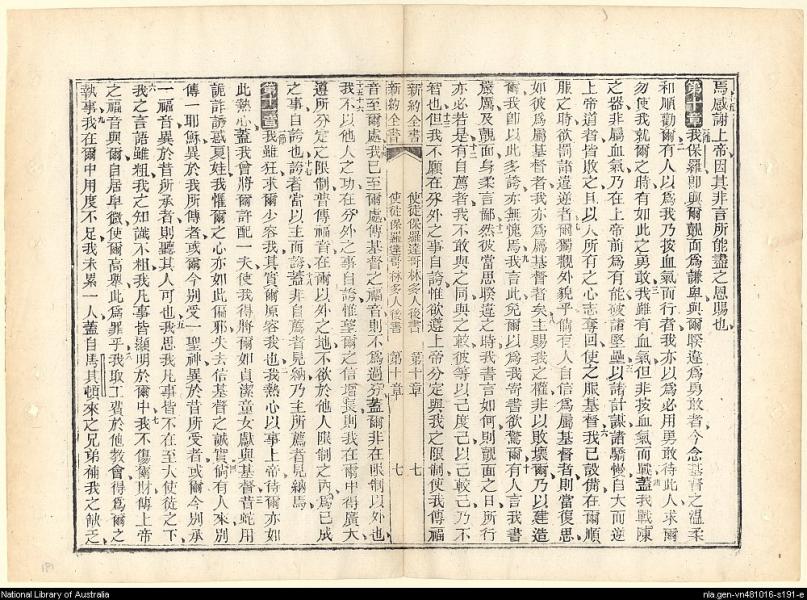 焉感謝上帝因其非言所能盡之恩賜也
第十章我保羅卽與爾覿面而為謙卑與爾睽違為勇敢者今念基督之溫柔
和順勸爾有人以為我乃按血氣而行者我亦以為必用勇敢待此人求爾
勿使我就爾之時有如此之勇敢我雖有血氣但非按血氣而戰蓋我戰陳
之器非屬血氣乃在上帝前為有能破諸堅壘以諸計謀諸驕慢自大而逆
上帝道者皆敗之且以人所有之心志奪回使之服基督我已設備在爾順
服之時欲罰諸違逆者爾獨觀外貌乎倘有人自信為屬基督者則當復思
如彼為屬基督者我亦為屬基督者矣主賜我之權非以敗壞爾乃以建造
爾我卽以此多誇亦無愧焉我言此免爾以為我寄書欲驚爾有人言我書
嚴厲及覿面身柔言鄙然彼當思睽違之時我書言如何則覿面之日所行
亦必若是有自薦者我不敢與之同與之較彼等以己度己以己較己乃不
智也但我不願在分外之事自誇惟欲遵上帝分定與我之限制使我傳福
新約全書 使徒保羅達哥林多人後書 第十章 七
新約全書 使徒保羅達哥林多人後書 第十章 七
音至爾處我已至爾處傳基督之福音則不為過分蓋爾非在限制以外也
我不以他人之功在分外之事自誇惟望爾之信增長則我在爾中得廣大
遵所分定之限制並傳福音在爾以外之地不欲於他人限制之內為已成
之事自誇也誇者當以主而誇蓋非自薦者見納乃主所薦者見納焉
第十一章我雖狂求爾少容我其實爾原容我也我熱心以事上帝待爾亦如
此熱心蓋我曾將爾許配一夫使我得將爾如貞潔童女獻與基督昔蛇用
詭詐誘惑夏娃我懼爾之心亦如此偏邪失去信基督之誠實倘有人來別
傳一耶穌異於我所傳者或爾今別受一聖神異於昔所受者或爾今別承
一福音異於昔所承者則聽其人可也我思我凡事皆不在至大使徒之下
我之言語雖粗我之知識不粗我凡事皆顯明於爾中我不傷爾財傳上帝
之福音與爾自居卑微使爾高舉此為罪乎我取工費於他教會得為爾之
執事我在爾中用度不足我未累一人蓋自馬其頓來之兄弟補我之缺乏
191
National Library of Australia
nla.gen-vn481016-s191-e